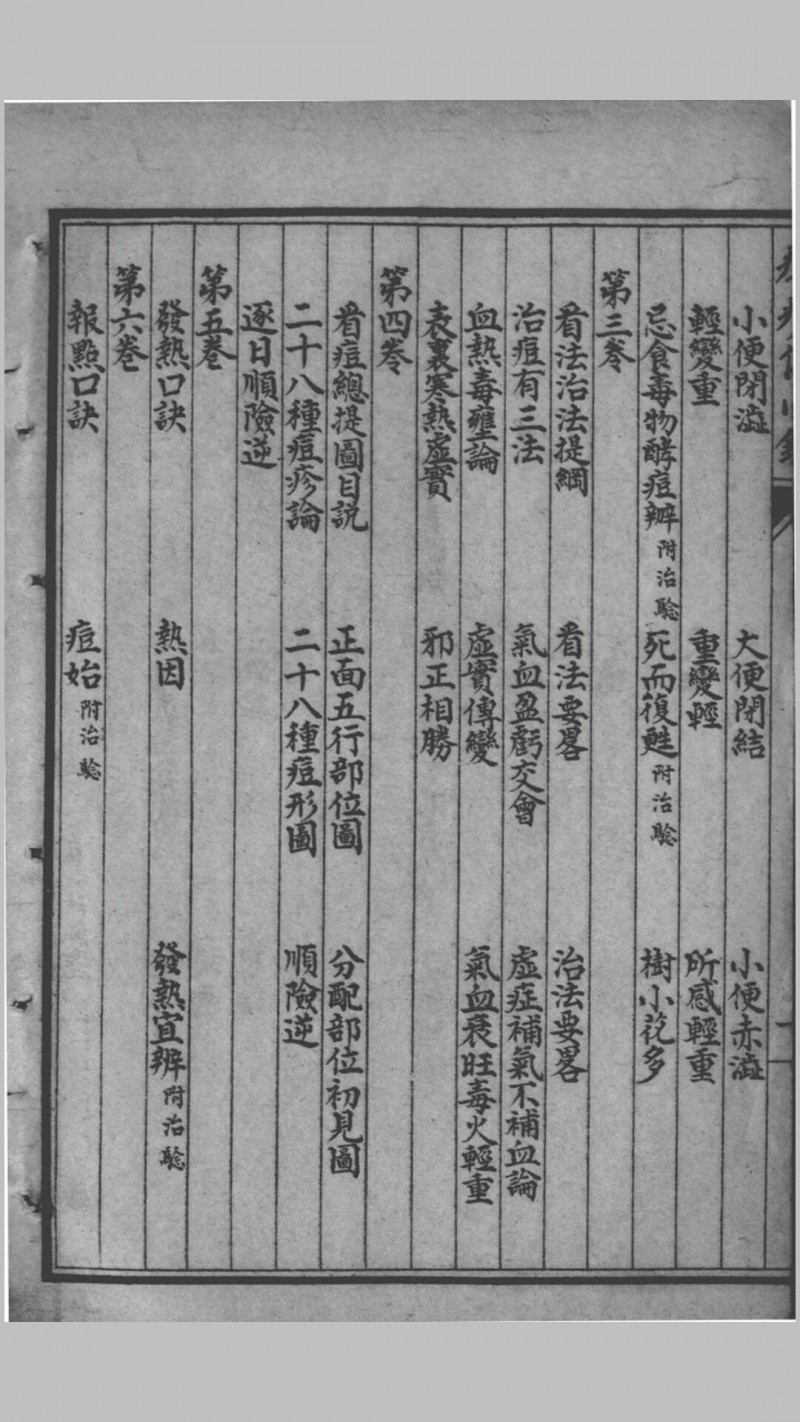 小便閉澁 大便閉結 小便赤澁
輕變重 重變輕 所感輕重
忌食毒物酵痘辨附治騐 死而復甦附治騐 樹小花多
第三卷
看法治法提綱 看法要畧 治法要畧
治痘有三法 氣血盈虧交會 虛症補氣不補血論
血熱毒壅論 虛實傳變 氣血衰旺毒火輕重
表裏寒熱虛實 邪正相勝
第四卷
看痘總提圖目説 正面五行部位圖 分配部位初見圖
二十八種痘疹論 二十八種痘形圖 順險逆
逐日順險逆
第五卷
發熱口訣 熱因 發熱宜辨附治騐
第六卷
報點口訣 痘始附治騐